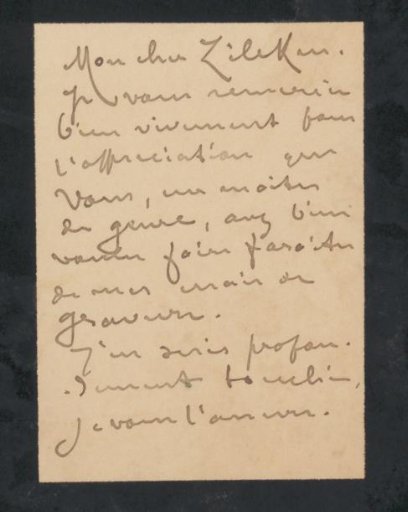 Mon cher Zilcken.
Je vous remercie
bien vivement pour
l'appréciation que
Vous, un maître
du genre, avez bien
voulu faire paraître
de mes essais de
gravure.
J'en suis profon-
dément touché,
je vous l'assure.